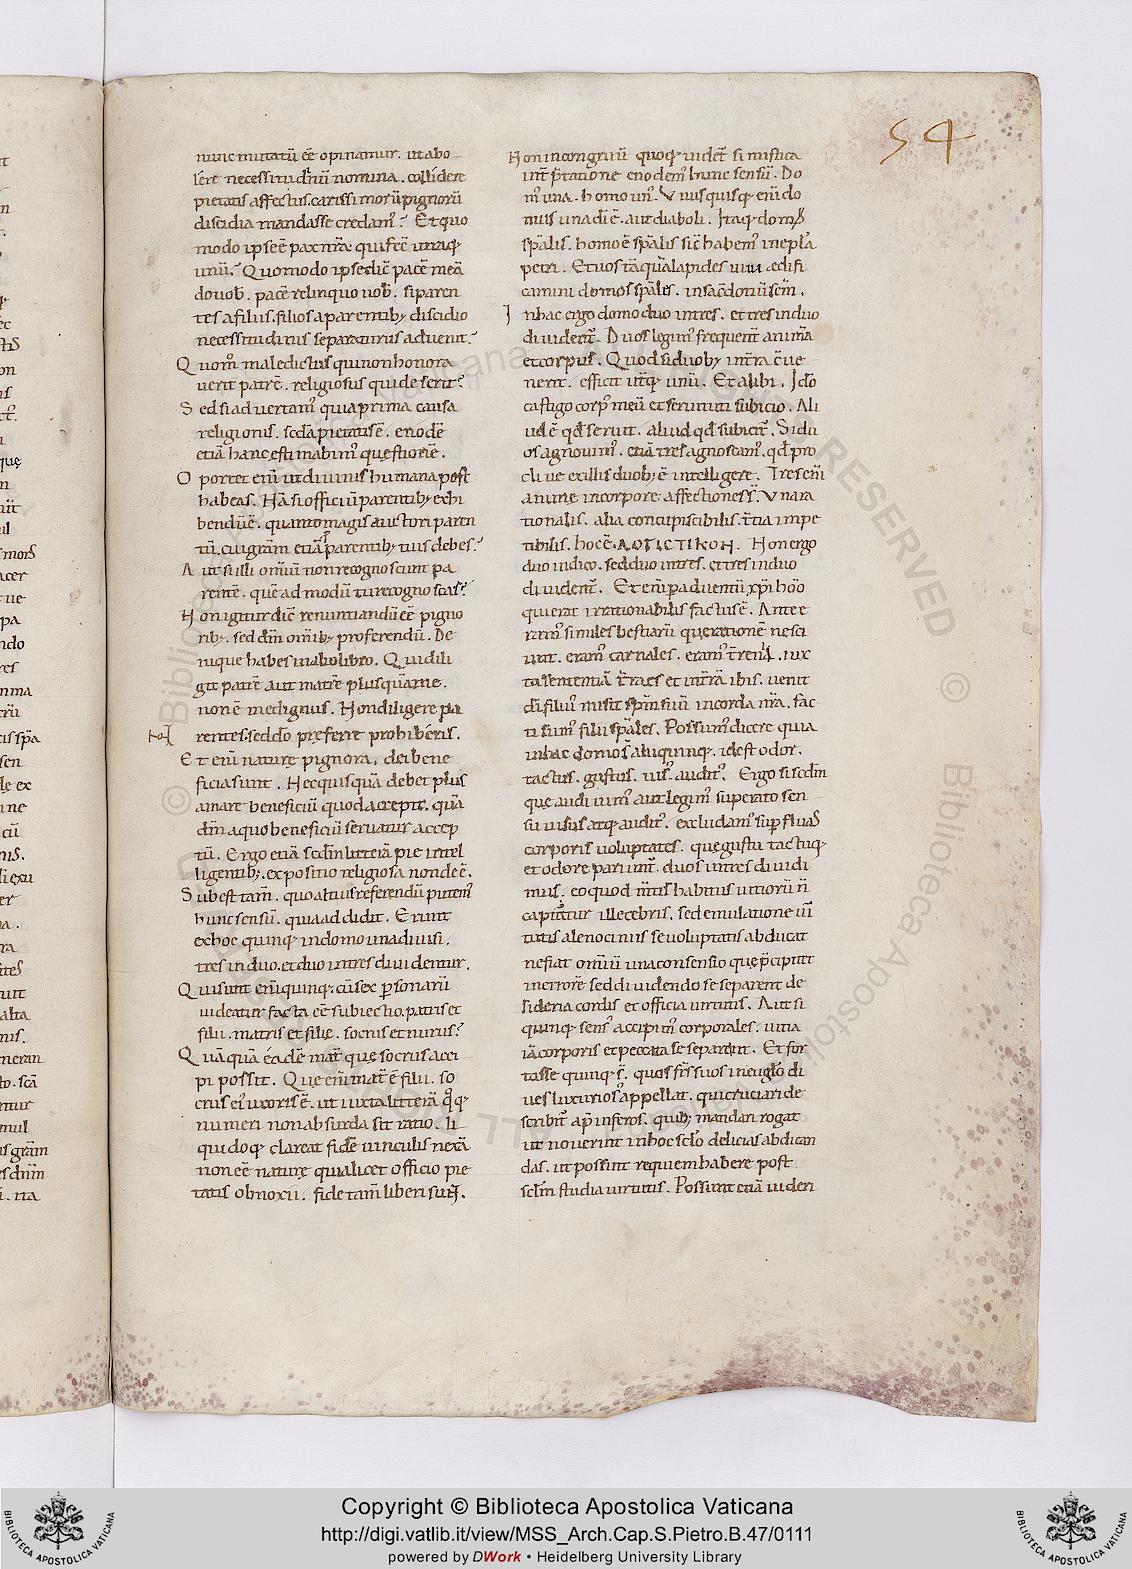 54
nunc mutatū eē opinamur. ut abo
lēre necessitudinū nomina. collidere
pietatis affectus. carissimorū pignorū
discidia mandasse credam᾽? Et quo
modo ipse ē pax nr̄a qui fecit utraq;
unū? Quomodo ipse dic̄ pacē meā
do uob̄. pacē relinquo uob̄. si paren
tes a filiis. filios a parentib; discidio
necessitudinis separaturus aduenit?
Quom̄ maledictus qui non honora
uerit patrē. religiosus qui deserit?
Sed si aduertam᾽ quia prima causa
religionis. scd̄a pietatis ē. eu ode
etiā hanc estimabim᾽ questionē.
Oportet enī ut diuinis humana post
habeas. Nā si officiū parentib; exhi
bendū ē. quanto magis auctori paren
tū. cui grām etiā parentib; tuis debes?
Aut si illi om̄ū non recognoscunt pa
rentē. quēadmodū tu recognoscas?
Non igitur dic̄ renuntiandū eē pigno
rib;. sed dm̄ om̄ib; proferendū. De
nique habes in alio libro. Qui dili
git patrē aut matrē plus quā me.
non ē me dignus. Non diligere pa
rentes. sed do preferre prohiberis.
Et enī nature pignora. dei bene
ficia sunt. Nec quisquā debet plus
amare beneficiū quod accepit. quā
dm̄ a quo beneficiū seruatur accep
tū. Ergo etiā scdm̄ litterā pie intel
ligentib;. expositio religiosa non deē.
Subest tam̄. quo altius referendū putem᾽
hunc sensū. quia addidit. Erunt
ex hoc quinq; in domo una diuisi.
tres in duo. et duo in tres diuidentur.
Qui sunt enī quinq;. cū sex psonarū
uideatur facta eē subiectio. patris et
filii. matris et filie. socrus et nurus?
Quāquā eadē mat̄ que socrus acci
pi possit. Que enī mat̄ ē filii. so
crus ei᾽ uxoris ē. ut iuxta litterā qq;
numeri non absurda sit ratio. li
quidoq; clareat fidē uinculis nexā
non eē nature qui a licet officio pie
tatis obnoxii. fide tam̄ liberi sunt.
Non incongruū quoq; uidet̄ si mistica
int̄pretatione enodem᾽ hunc sensū. Do
m᾽ una. homo un᾽. Unusquisq; enī do
mus una dī ē. aut diaboli. Itaq; dom᾽
spālis. homo ē spālis sic̄ habem᾽ in epl̄a
petri. Et uos tāquā lapides uiui ædifi
camini domos spāles. in sacdotiū scm̄.
In hac ergo domo duo in tres. et tres in duo
diuident̄. Duos legim᾽ frequent̄ animā
et corpus. Quod si duob; int̄ra c̄ue
nerit. efficit utq; unū. Et alibi. Ido
castigo corp᾽ meū et seruituti subicio. Ali
ud ē qd̄ seruit. aliud qd̄ subicit̄. Si du
os agnouim᾽. etiā tres agnoscam᾽. qd̄ pro
cliue ex illis duob; ē intelligere. Tres enī
anime in corpore affectiones s̄. Una ra
tionalis. alia concupiscibilis. t̄tia impe
tibilis. hoc ē. ΛΟΓΙCΤΙΚΟΝ. Non ergo
duo in duo. sed duo in tres. et tres in duo
diuident̄. Et enī p aduentū xpī hōo
qui erat irrationabilis factus ē. Ante e
ram᾽ similes bestiarū que rationē nesci
unt. eram᾽ carnales. eram᾽ t̄reni. iux
ta sententiā t̄ra es et in t̄rā ibis. uenit
di filiu᾽ misit spm̄ suū in corda nr̄a. fac
ti sum᾽ filii spāles. Possum᾽ dicere quia
in hac domo s̄ alii quinq;. id est odor.
tactus. gustus. uis᾽ audit᾽. Ergo si scdm̄
que audiuim᾽ aut legim᾽ superato sen
su uisus atq; audit᾽. excludam᾽ supfluas
corporis uoluptates. que gustu tactuq;
et odore pariunt̄. duos in tres diuidi
mus. eo quod mtis habitus uitiorū n̄
capiant̄ur illecebris. sed emulatione uir
tutis a lenociniis se uoluptatis abducat
ne fiat om̄ū una consensio que p̄cipitet
in errorē sed diuidendo se separent de
sideria cordis et officia uirtutis. Aut si
quinq; sens᾽ accipim᾽ corporales. uitia
iā corporis et peccata se separent. Et for
tasse quinq; s̄. quos frs̄ suos in euglo di
ues luxuriosos appellat. qui cruciari de
scribit̄ ap̄ inferos. quib; mandari rogat
ut nouerint in hoc sclo delicias abdican
das. ut possint requiem habere post
sclm̄ studia uirtutis. Possunt etiā uideri
Copyright © Biblioteca Apostolica Vaticana
http://digi.vatlib.it/view/MSS_Arch.Cap.S.Pietro.B.47/0111
powered by DWork • Heidelberg University Library
BIBLIOTECA APOSTOLICA VATICANA
BIBLIOTECA APOSTOLICA VATICANA